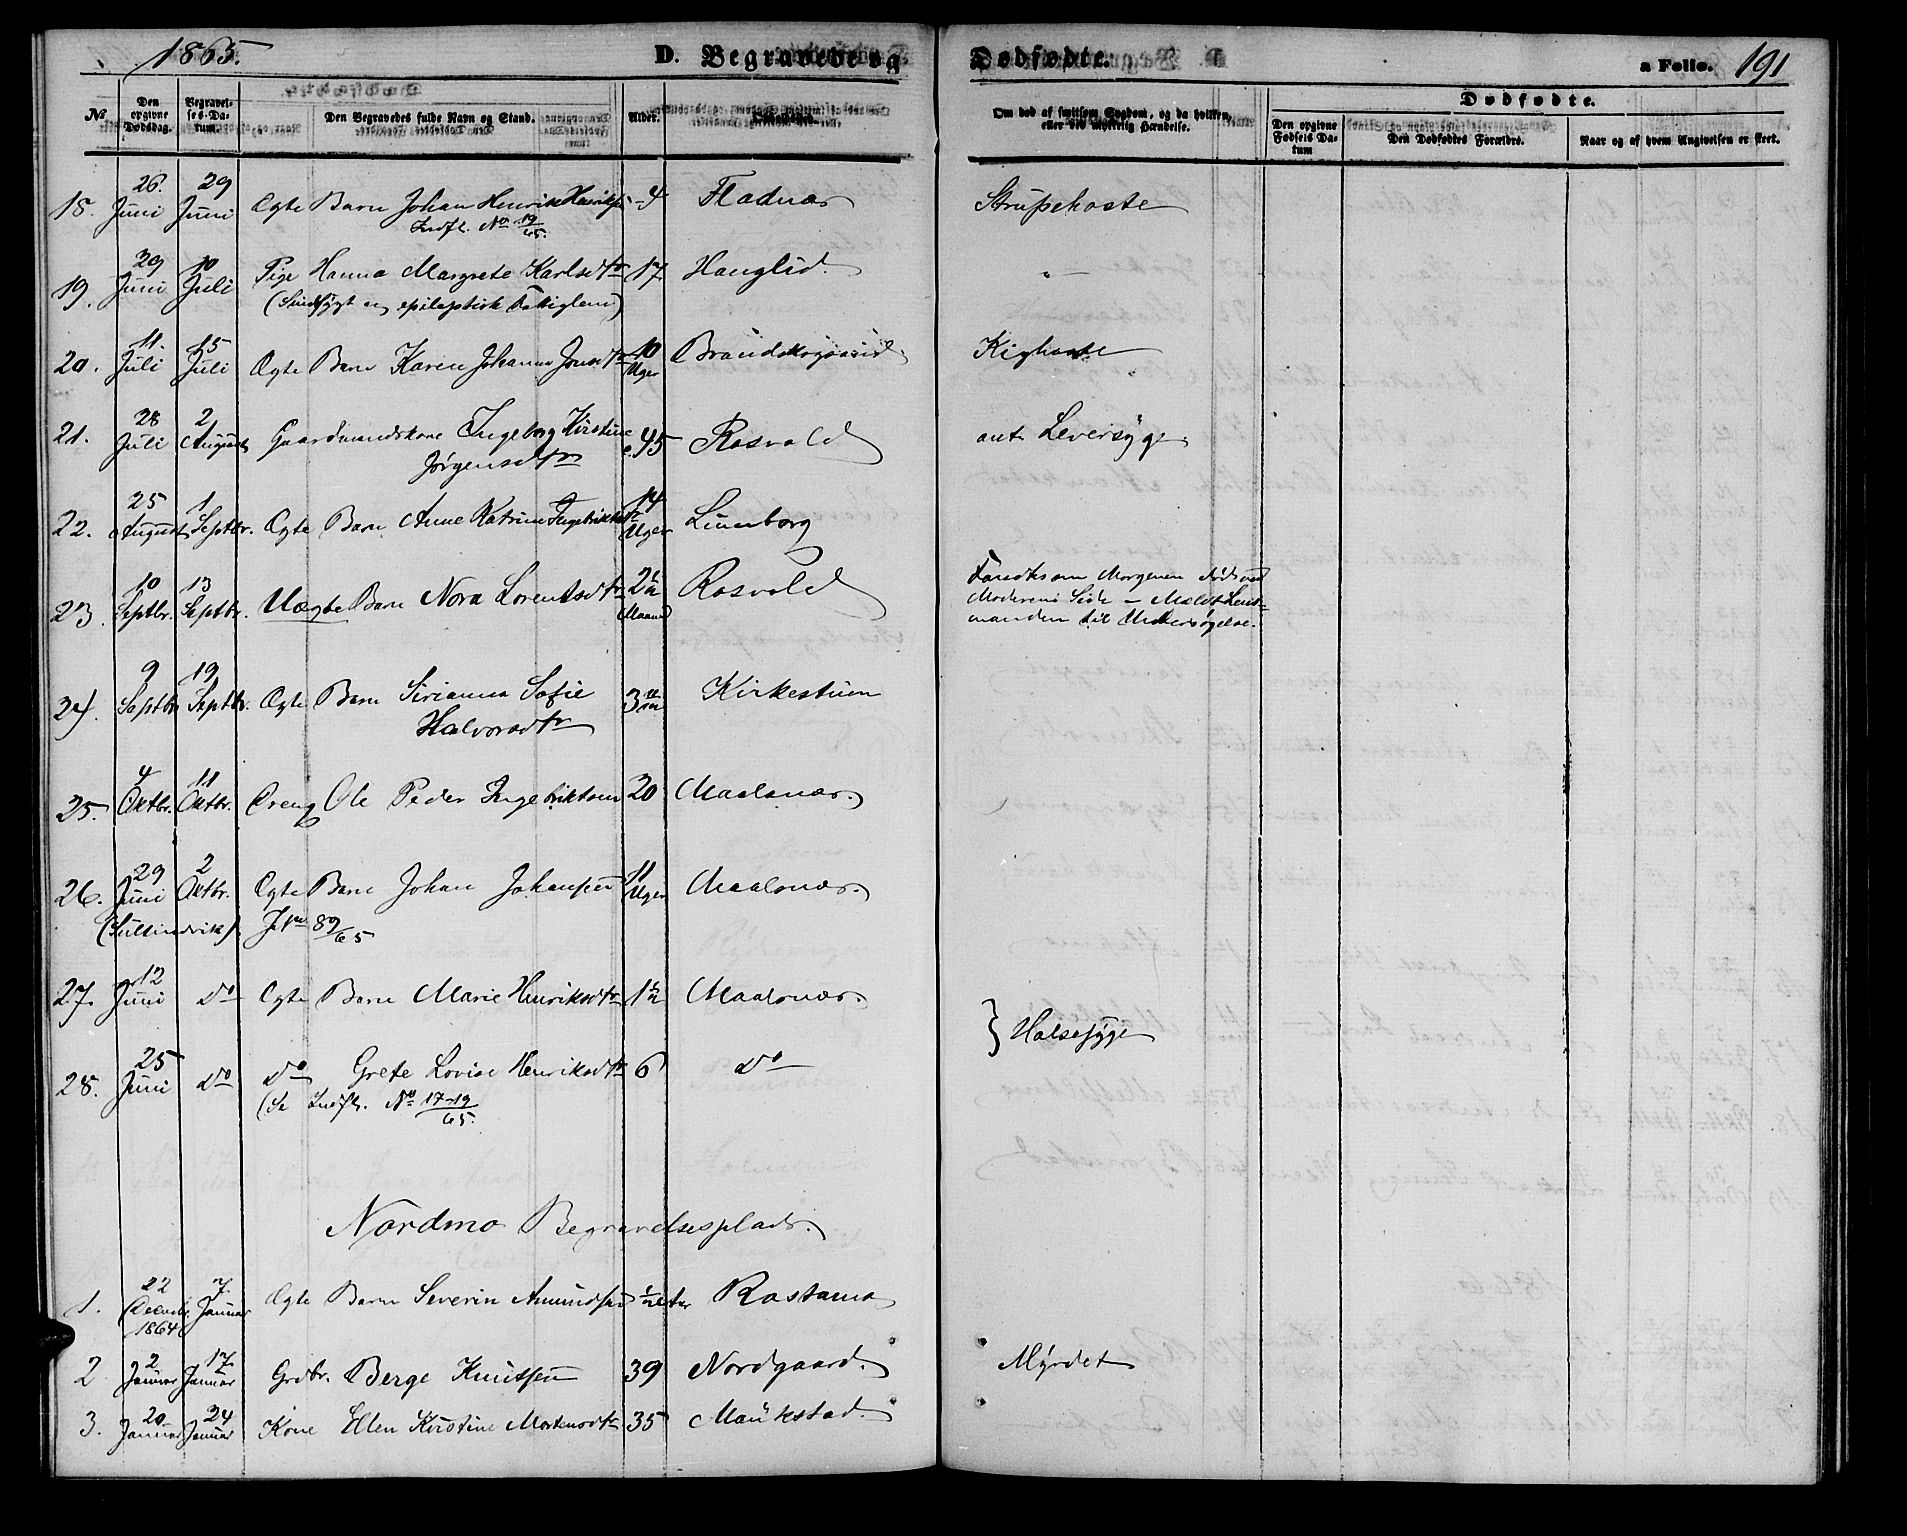 1865. D. Begravede og Dødfødte. a Folio. 191
№ Den opgivne Dødsdag. Begravelses-Datum. Den Begravedes fulde Navn og Stand. Alder. Om død af smitsom Sygdom, og da hvilken, eller ved ulykkelig Hændelse. Dødfødte.
Den opgivne Fødsels Datum Den Dødfødtes Forældre. Naar og af hvem Angivelsen er skeet.
18. 26. Juni 29 Juni Ægte Barn Johan Henrik Henriksen 4 Fladnæs Strupehoste
Indfl. No 19/65.
19. 29 Juni 10 Juli Pige Hanna Margrete Karlsdtr 17 Hauglid. "
(Sindsygt og epileptisk Fattiglem)
20. 11. Juli 15 Juli Ægte Barn Karen Johanna Jonsdtr 10 Uger Brandskognæsid. Kighoste
21. 28 Juli 2 August Gaardmandskone Ingeborg Kirstine 45 Rosvold ant. Leversyge.
Jørgensdtr
22. 25 August 1 Septbr. Ægte Barn Anne Katrine Ingebriktsdtr 14 Uger Luneborg
23. 10 Septbr. 13 Septbr. Uægte Barn Nora Lorentsdtr 2½ Maaned Rosvold Fandtes om Morgenen død ved
Moderens Side – Meldt Lens-
manden til Undersøgelse.
24. 9 Septbr 19 Septbr. Ægte Barn Sirianna Sofie 3 Kirkestuen
Halvorsdtr
25. 4 Oktbr. 11 Oktbr. Dreng Ole Peder Ingebriktsen 20 Maalsnæs.
26. 29 Juni 2 Oktbr. Ægte Barn Johan Johansen 11 Uger Maalsnæs.
(Sultindvik). 89/65
27. 12 Juni do Ægte Barn Marie Henriksdtr 1½ Maalsnæs.
} Halsesyge
28. 25 Juni do do Grete Lovise Henriksdtr 6 do
(Se Indfl. No 17-19/65.
Nordmo Begravelsesplads.
1. 22 Decembr. 1864 7. Januar Ægte Barn Severin Amundsen ½ Rostamo
2 2 Januar 17 Januar Grdbr. Berge Knutsen 39 Nordgaard. Myrdet
3. 20 Januar 24 Januar Kone Ellen Kirstine Mortensdtr 35 Maukstad.